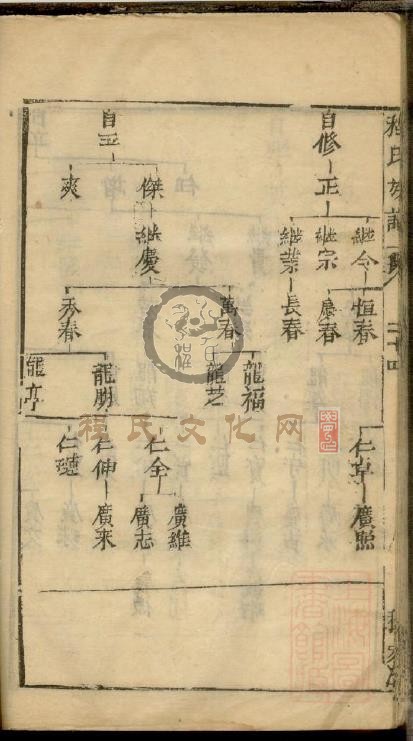 程氏族譜
二十四
自修
正
繼令
繼宗
繼業
恒春
康春
長春
仁卓
廣照
自玉
傑
爽
繼慶
萬春
秀春
龍福
龍芝
龍朋
龍亭
仁全
仁伸
仁璉
廣維
廣志
廣來
程氏文化网